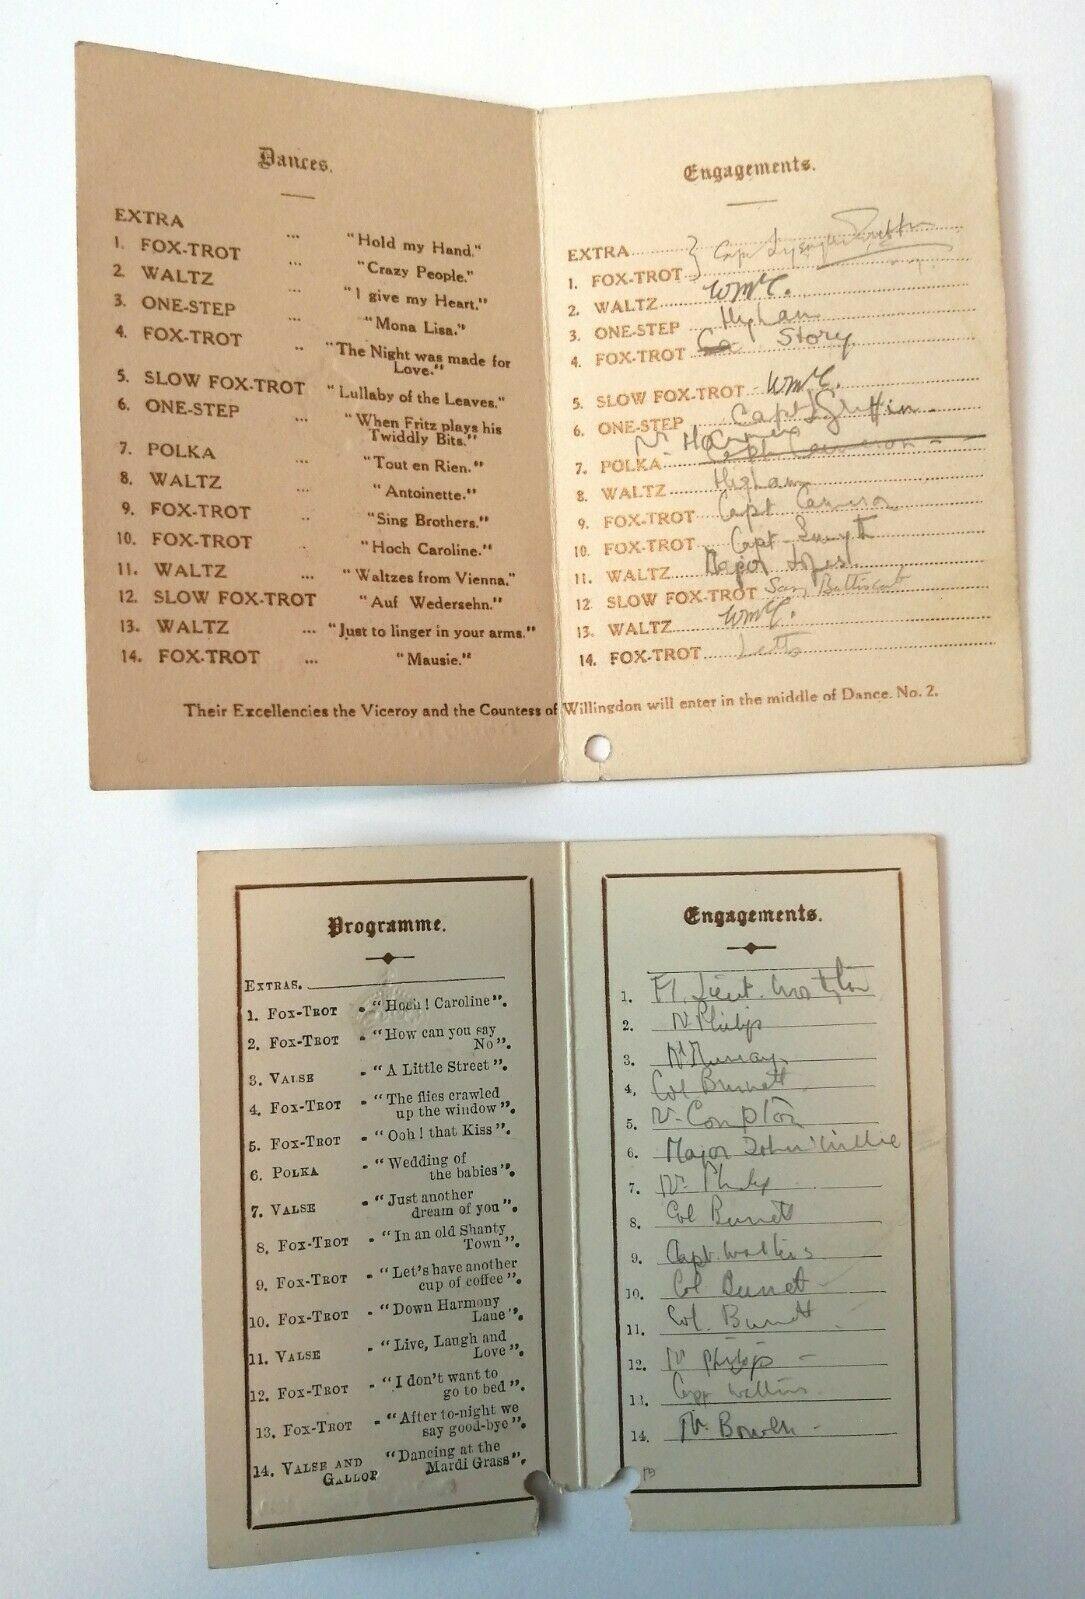 Dances.
EXTRA
1. FOX-TROT ... "Hold my Hand."
2. WALTZ ... "Crazy People."
3. ONE-STEP ... "I give my Heart."
4. FOX-TROT ... "Mona Lisa."
"The Night was made for
Love."
5. SLOW FOX-TROT "Lullaby of the Leaves."
6. ONE-STEP ... "When Fritz plays his
Twiddly Bits."
7. POLKA ... "Tout en Rien."
8. WALTZ ... "Antoinette."
9. FOX-TROT .. "Sing Brothers."
10. FOX-TROT ... "Hoch Caroline."
11. WALTZ ... "Waltzes from Vienna."
12. SLOW FOX-TROT ... "Auf Wedersehn."
13. WALTZ ... "Just to linger in your arms."
14. FOX-TROT ... "Mausie."
Engagements.
EXTRA
1. FOX-TROT Capt
2. WALTZ WMC.
3. ONE-STEP Higham
4. FOX-TROT Story
5. SLOW FOX-TROT WMC.
6. ONE-STEP Capt Griffin
7. POLKA
8. WALTZ Higham
9. FOX-TROT Capt Cameron
10. FOX-TROT Capt Smyth
11. WALTZ Major
12. SLOW FOX-TROT Sam
13. WALTZ WMC.
14. FOX-TROT Letts
Their Excellencies the Viceroy and the Countess of Willingdon will enter in the middle of Dance. No. 2.
Programme.
EXTRAS.
1. FOX-TROT - "Hoch! Caroline".
2. FOX-TROT - "How can you say
No".
3. VALSE - "A Little Street".
4. FOX-TROT - "The flies crawled
up the window".
5. FOX-TROT - "Ooh! that Kiss".
6. POLKA - "Wedding of
the babies".
7. VALSE - "Just another
dream of you".
8. FOX-TROT - "In an old Shanty
Town".
9. FOX-TROT - "Let's have another
cup of coffee".
10. FOX-TROT - "Down Harmony
Lane".
11. VALSE - "Live, Laugh and
Love".
12. FOX-TROT - "I don't want to
go to bed".
13. FOX-TROT - "After to-night we
say good-bye".
14. VALSE AND "Dancing at the
GALLOP Mardi Grass".
Engagements.
1. Fl. Lieut.
2. Mr Philip
3. Mr Murray
4. Col Burnett
5. Mr Compton
6. Major John
7. Mr Philip
8. Col Burnett
9. Capt. Watkins
10. Col Burnett
11. Col. Burnett
12. Mr Philip -
13. Capt Watkins
14. Mr Bowen -